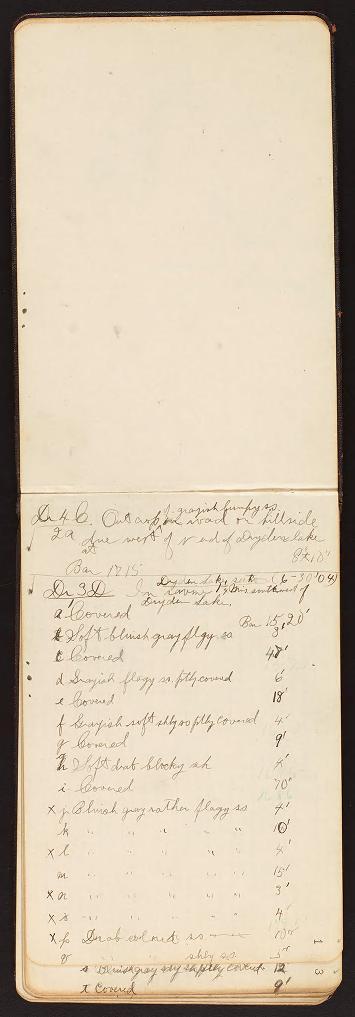 of grayish lumpy ss.
Dr 4 C. Outcrop in road on hillside
2a due west of N end of Dryden Lake
at 8± 10'
Bar 1215
Dryden Lake, (6-30'04)
Dr 3 D In ravine ½ m southwest of
Dryden Lake.
a Covered Bar 15,20'
b Soft bluish gray flgy ss 3'
c Covered
d Grayish flaggy ss. ptly covered 6'
e Covered 18'
f Grayish soft shly ss ptly covered 4'
g Covered 9'
h Soft drab blocky sh
i Covered 70'
x j Bluish gray rather flaggy ss 4'
k " " " " " 10'
x l " " " " " 4'
m " " " " " 15'
x n " " " " " 3'
x o " " " " " 4'
x p Drab colored ss
q " " shly ss
s Bluish gray shly ss ptly covered 12
t Covered 9'
1 3